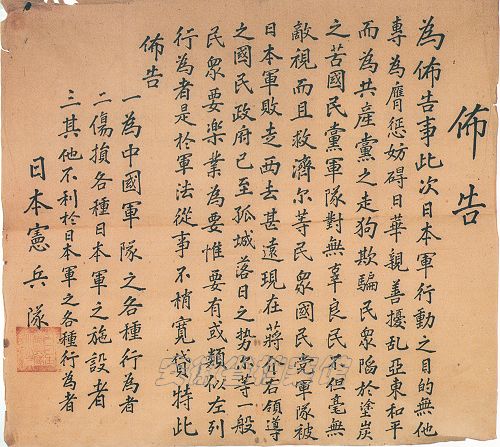 佈告
為佈告事此次日本軍行動之目的無他
專為膺惩妨碍日華親善擾乱亞東和平
而為共產黨之走狗欺騙民衆陷於塗炭
之苦國民黨軍隊對無辜良民不但毫無
敵視而且救濟尔等民衆國民党軍隊被
日本軍敗走西去甚遠現在蔣介石領導
之國民政府已至孤城落日之勢尔等一般
民衆要楽業為要惟要有或類似左列
行為者是於軍法從事不稍寬貸特此
佈告
一為中國軍隊之各種行為者
二傷損各種日本軍之施設者
三其他不利於日本軍之各種行為者
日本憲兵隊